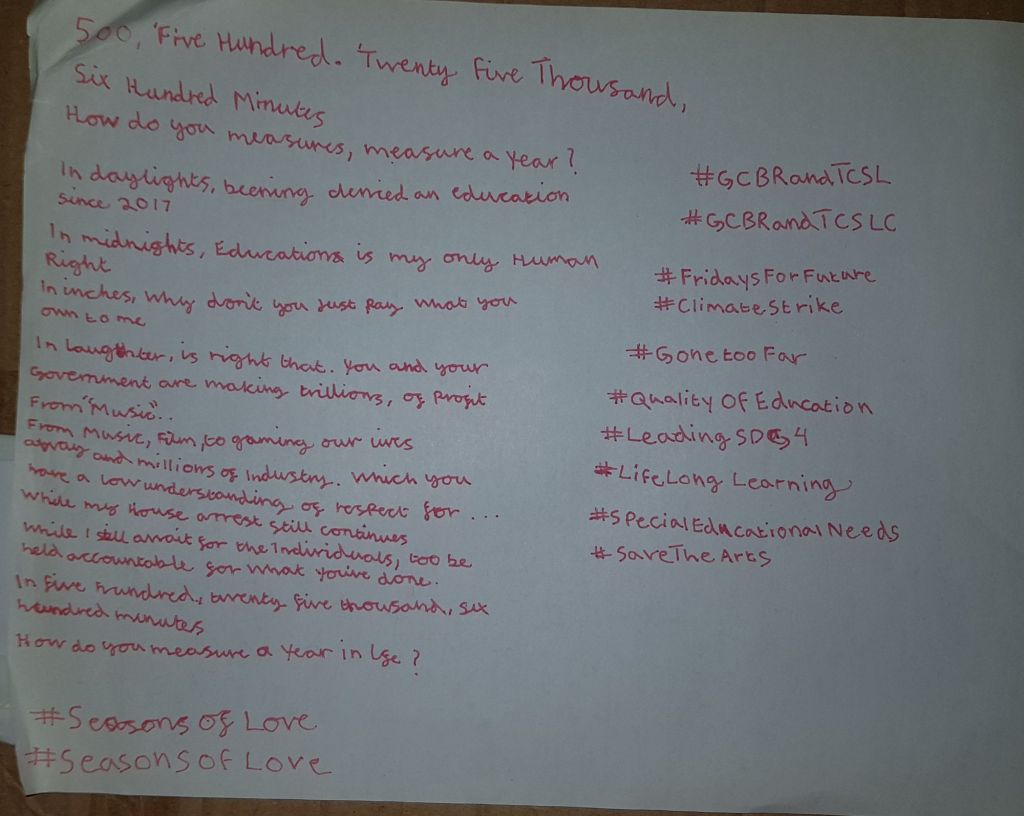 500, 'Five Hundred. 'Twenty Five Thousand,
Six Hundred Minutes
How do you measures, measure a year?
In daylights, beening denied an education
since 2017
In midnights, Educations is my only Human
Right
In inches, why don't you just pay what you
own to me
In laughter, is right that. You and your
Government are making trillions, of profit
From "Music"..
From Music, Film, to gaming our lives
away and millions of Industry. Which you
have a low understanding of respect for ...
While my House arrest still continues
While I still await for the Individuals, too be
held accountable for what you've done.
In five hundred, twenty five thousand, six
hundred minutes
How do you measure a year in life?
#Seasons Of Love
#Seasons Of Love
#GCBRandTCSL
#GCBRandTCSLC
#FridaysForFuture
#ClimateStrike
#Gone too Far
#Quality Of Education
#Leading SDG4
#LifeLong Learning
#SpecialEducationalNeeds
#SaveTheArts